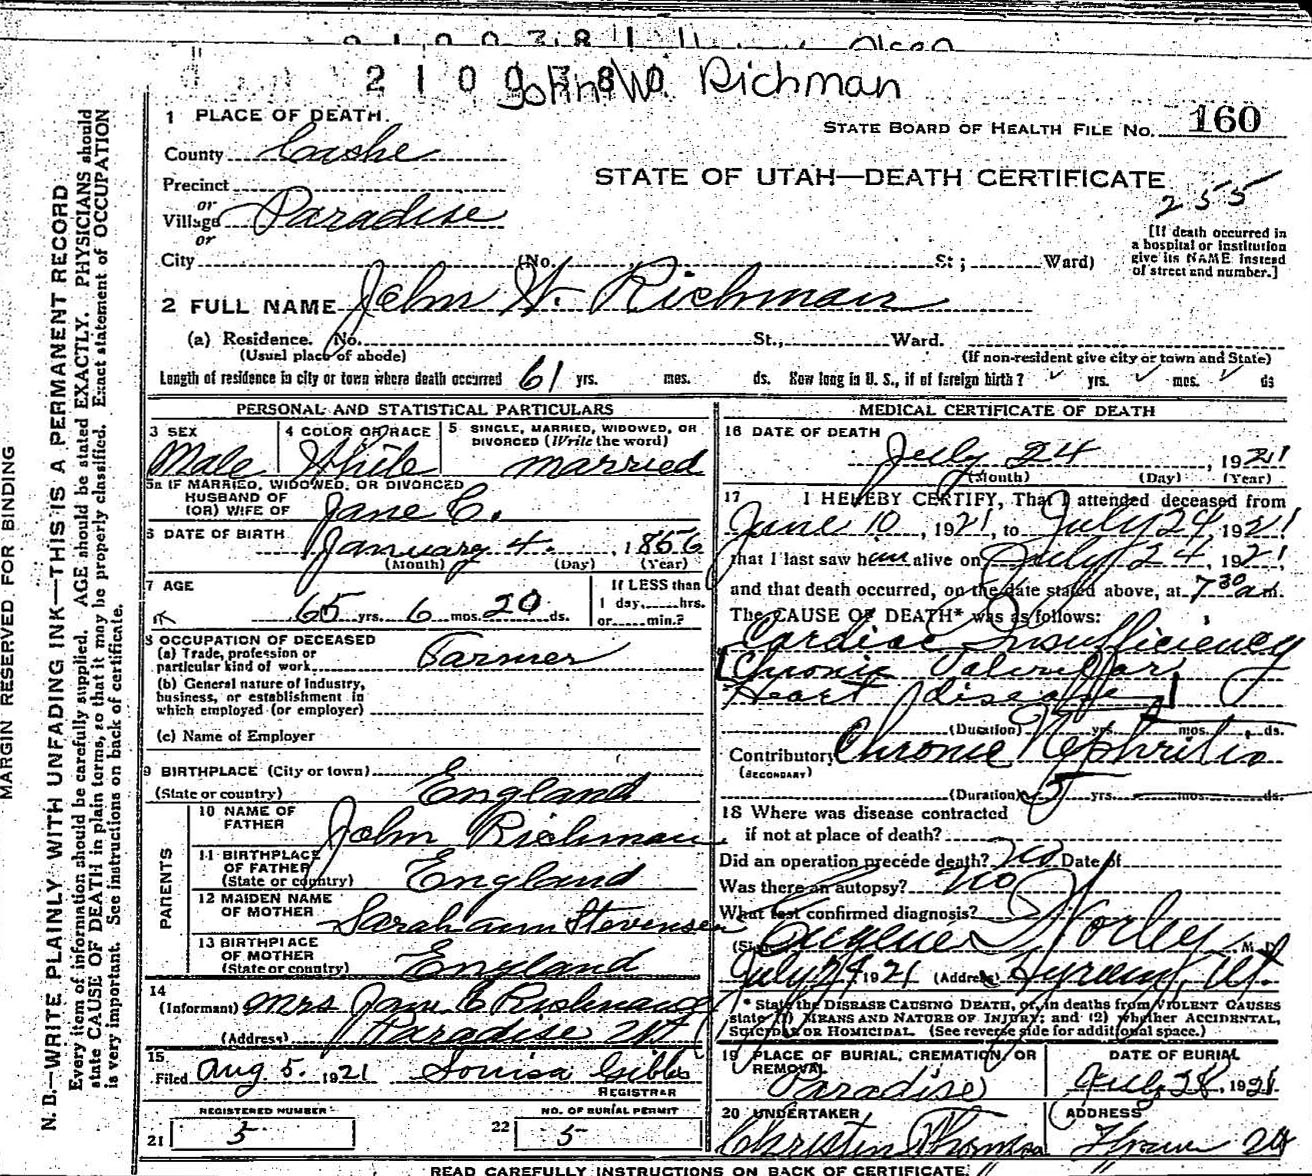 2100780
John W. Richman
1 PLACE OF DEATH.
STATE BOARD OF HEALTH FILE No. 160
County Cashe
STATE OF UTAH—DEATH CERTIFICATE
255
Precinct
or
Village Paradise
or
[If death occurred in
a hospital or institution
give its NAME instead
of street and number.]
City (No. St; Ward)
2 FULL NAME John W. Richman
(a) Residence. No. St., Ward.
(Usual place of abode) (If non-resident give city or town and State)
Length of residence in city or town where death occurred 61 yrs. mos. ds. How long in U. S., if of foreign birth? yrs. mos. ds
PERSONAL AND STATISTICAL PARTICULARS
3 SEX Male
4 COLOR OR RACE White
5 SINGLE, MARRIED, WIDOWED, OR
DIVORCED (Write the word)
married
5a IF MARRIED, WIDOWED, OR DIVORCED
HUSBAND OF
(OR) WIFE OF Jane C.
6 DATE OF BIRTH January 4. 1856
(Month) (Day) (Year)
7 AGE 65 yrs. 6 mos. 20 ds.
If LESS than
1 day, hrs.
or min.?
8 OCCUPATION OF DECEASED
(a) Trade, profession or
particular kind of work Farmer
(b) General nature of Industry,
business, or establishment in
which employed (or employer)
(c) Name of Employer
9 BIRTHPLACE (City or town)
(State or country) England
PARENTS
10 NAME OF
FATHER John Richman
11 BIRTHPLACE
OF FATHER
(State or country) England
12 MAIDEN NAME
OF MOTHER Sarah ann Stevenson
13 BIRTHPLACE
OF MOTHER
(State or country) England
14
(Informant) Mrs Jane C Richman
(Address) Paradise Ut
15.
Filed Aug 5. 1921 Louisa Gibbs
REGISTRAR
REGISTERED NUMBER
21 5
NO. OF BURIAL PERMIT
22 5
MEDICAL CERTIFICATE OF DEATH
16 DATE OF DEATH
July 24, 1921
(Month) (Day) (Year)
17 I HEREBY CERTIFY, That I attended deceased from
June 10, 1921, to July 24, 1921
that I last saw him alive on July 24, 1921
and that death occurred, on the date stated above, at 7 30 a m.
The CAUSE OF DEATH* was as follows:
Cardiac Insufficiency
Chronic Valvular
Heart disease
(Duration) yrs. mos. ds.
Contributory Chronic Nephritis
(SECONDARY)
(Duration) 5 yrs. mos. ds.
18 Where was disease contracted
if not at place of death?
Did an operation precede death? no Date of
Was there an autopsy? no
What test confirmed diagnosis?
(Signed) Eugene Worley M. D.
July 29 1921 (Address) Hyrum, Ut.
* State the DISEASE CAUSING DEATH, or, in deaths from VIOLENT CAUSES
state (1) MEANS AND NATURE OF INJURY; and (2) whether ACCIDENTAL,
SUICIDAL OR HOMICIDAL. (See reverse side for additional space.)
19 PLACE OF BURIAL, CREMATION, OR
REMOVAL
Paradise
DATE OF BURIAL
July 28, 1921
20 UNDERTAKER
ADDRESS
READ CAREFULLY INSTRUCTIONS ON BACK OF CERTIFICATE
MARGIN RESERVED FOR BINDING
N. B.—WRITE PLAINLY WITH UNFADING INK—THIS IS A PERMANENT RECORD
Every item of information should be carefully supplied. AGE should be stated EXACTLY. PHYSICIANS should
state CAUSE OF DEATH in plain terms, so that it may be properly classified. Exact statement of OCCUPATION
is very important. See instructions on back of certificate.